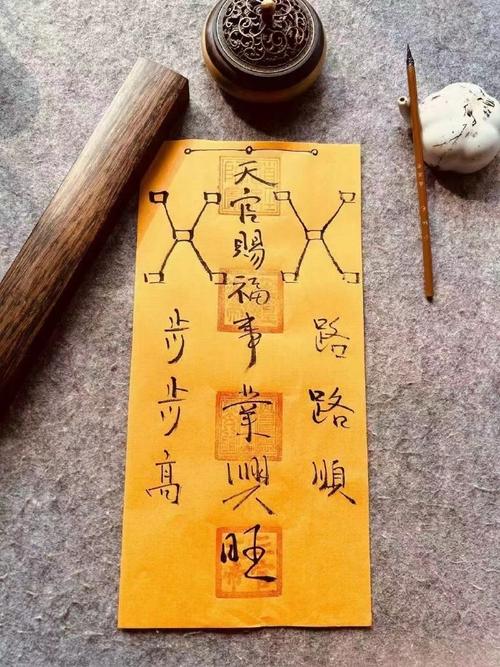 路路順
天官賜福事業興旺
步步高